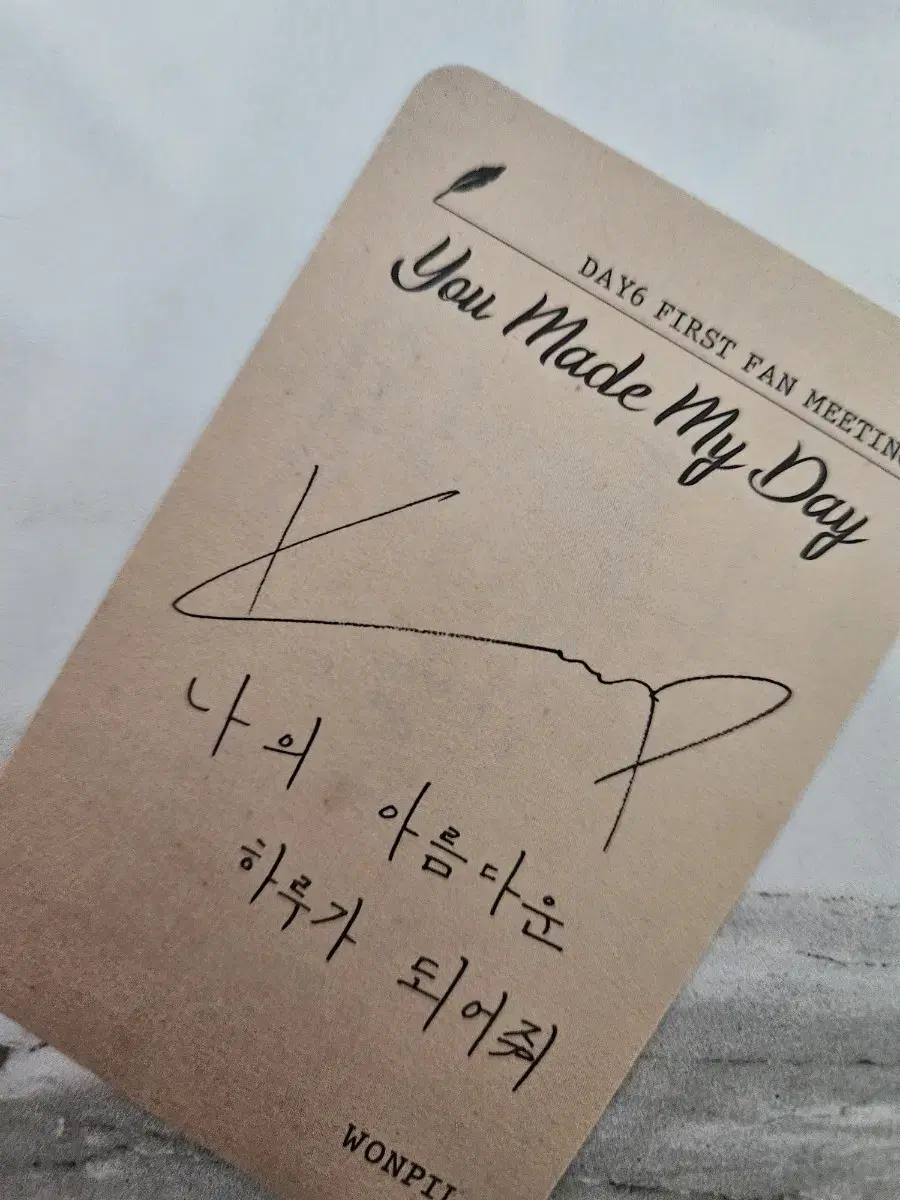 DAY6 FIRST FAN MEETING
You Made My Day
나의 아름다운
하루가 되어줘
WONPIL